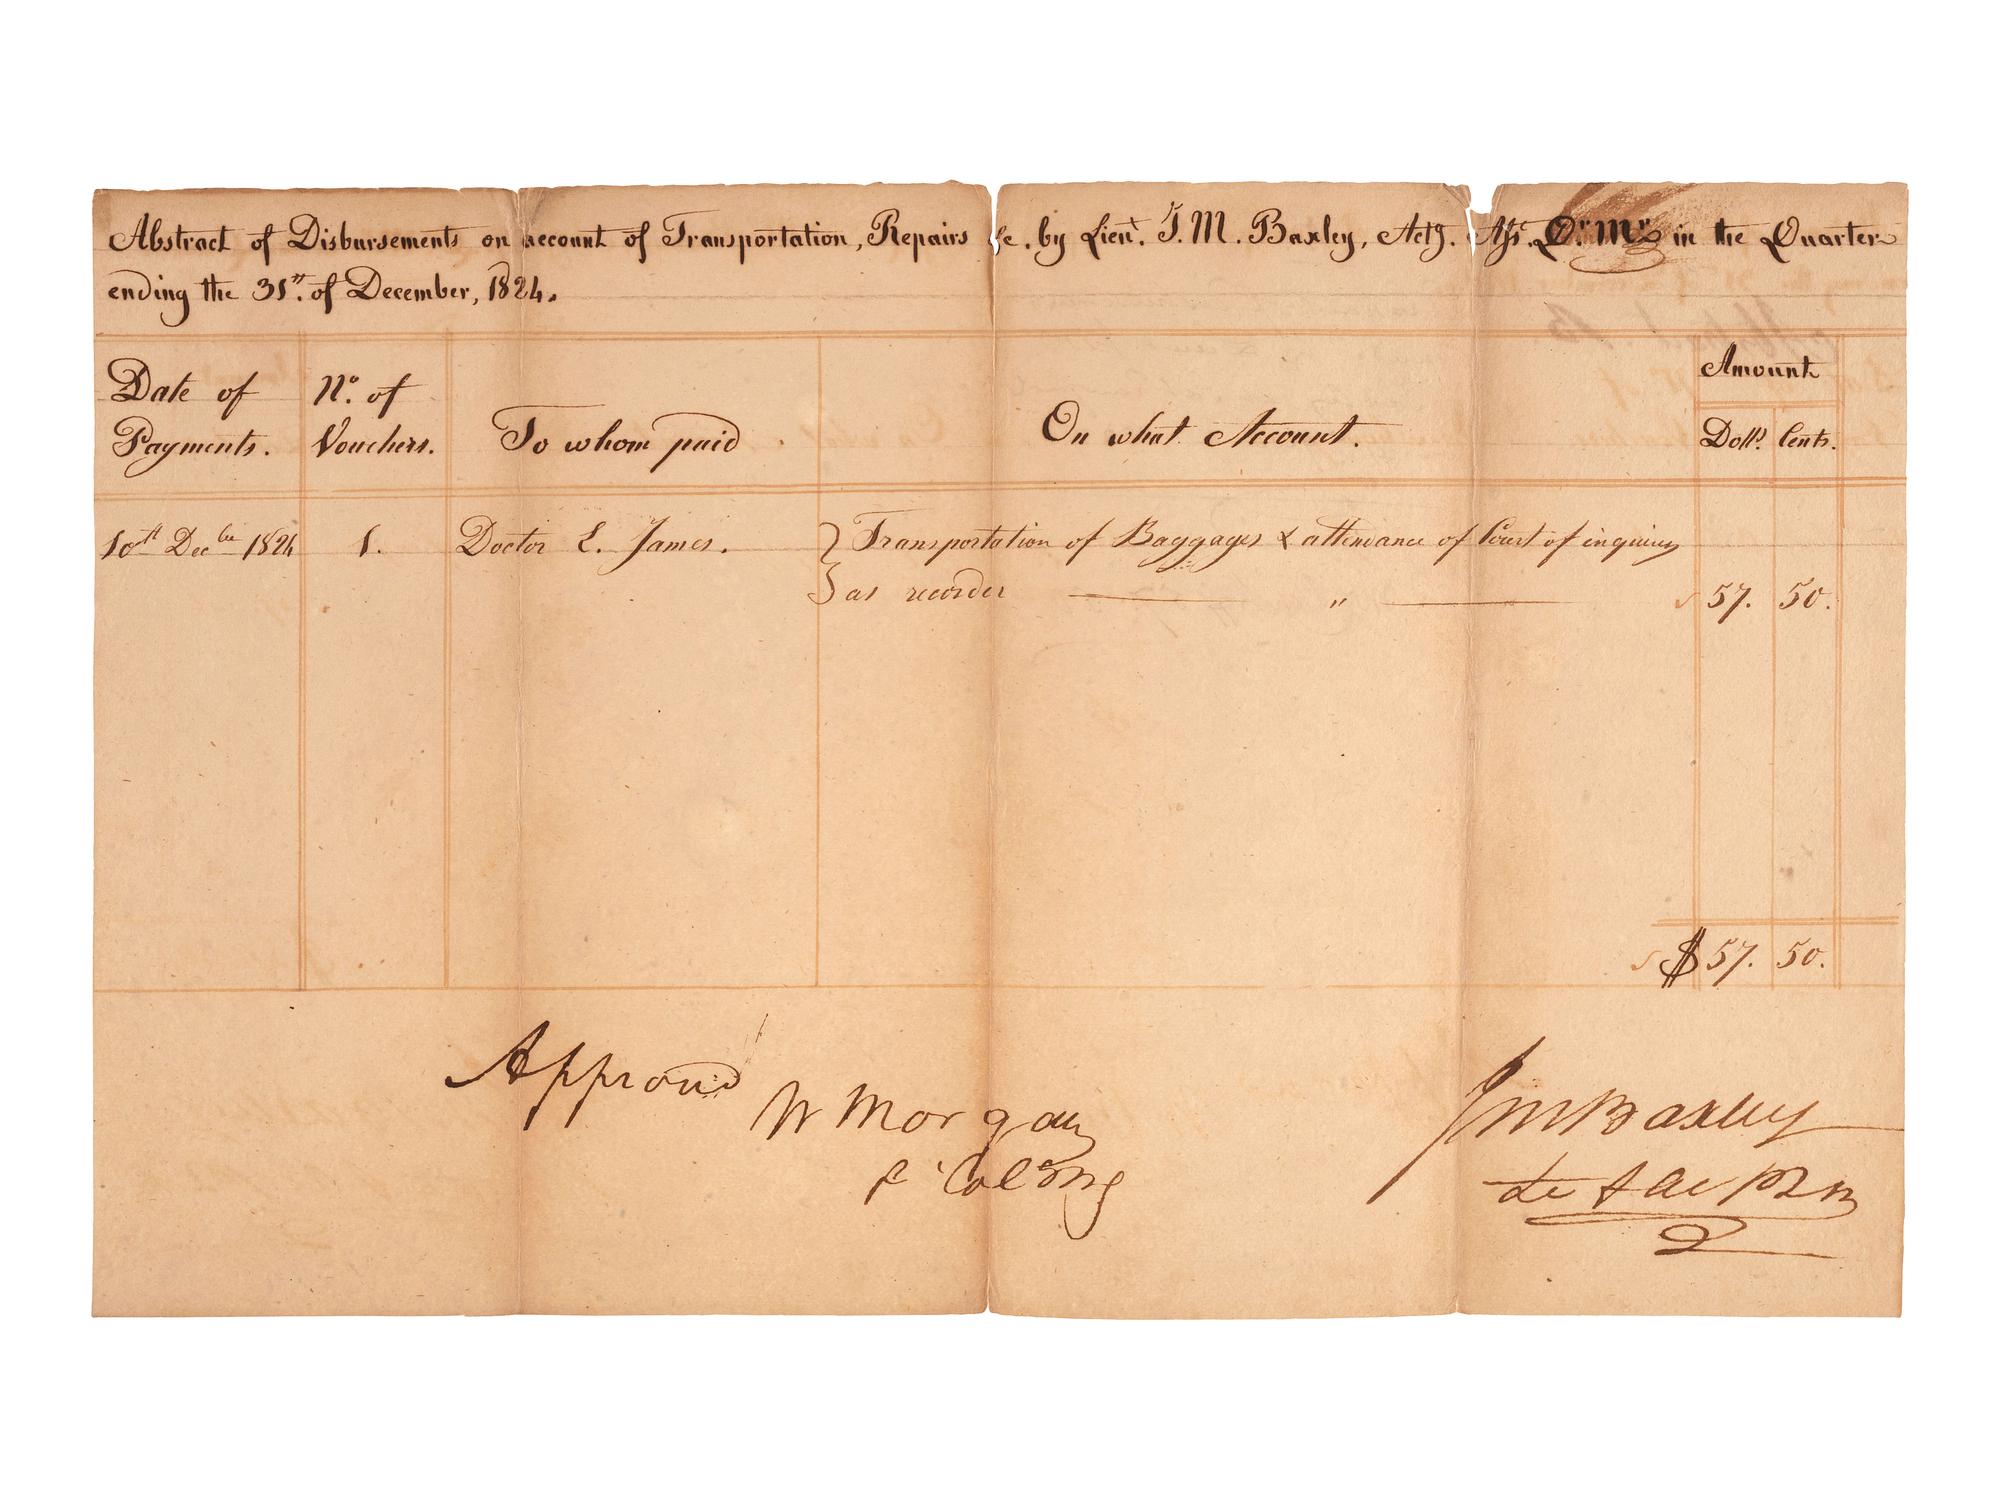 Abstract of Disbursements on account of Transportation, Repairs &c. by Lieut. J. M. Baxley, Actg. Ast. Qr. Mr. in the Quarter
ending the 31st. of December, 1824.
Date of Payments.
No. of Vouchers.
To whom paid
On what Account.
Amount
Dolls. Cents.
10th Decbr 1824 1. Doctor E. James. Transportation of Baggages & attendance of Court of inquiry
as recorder " 57. 50.
$ 57. 50.
Approved
W Morgan
JM Baxley